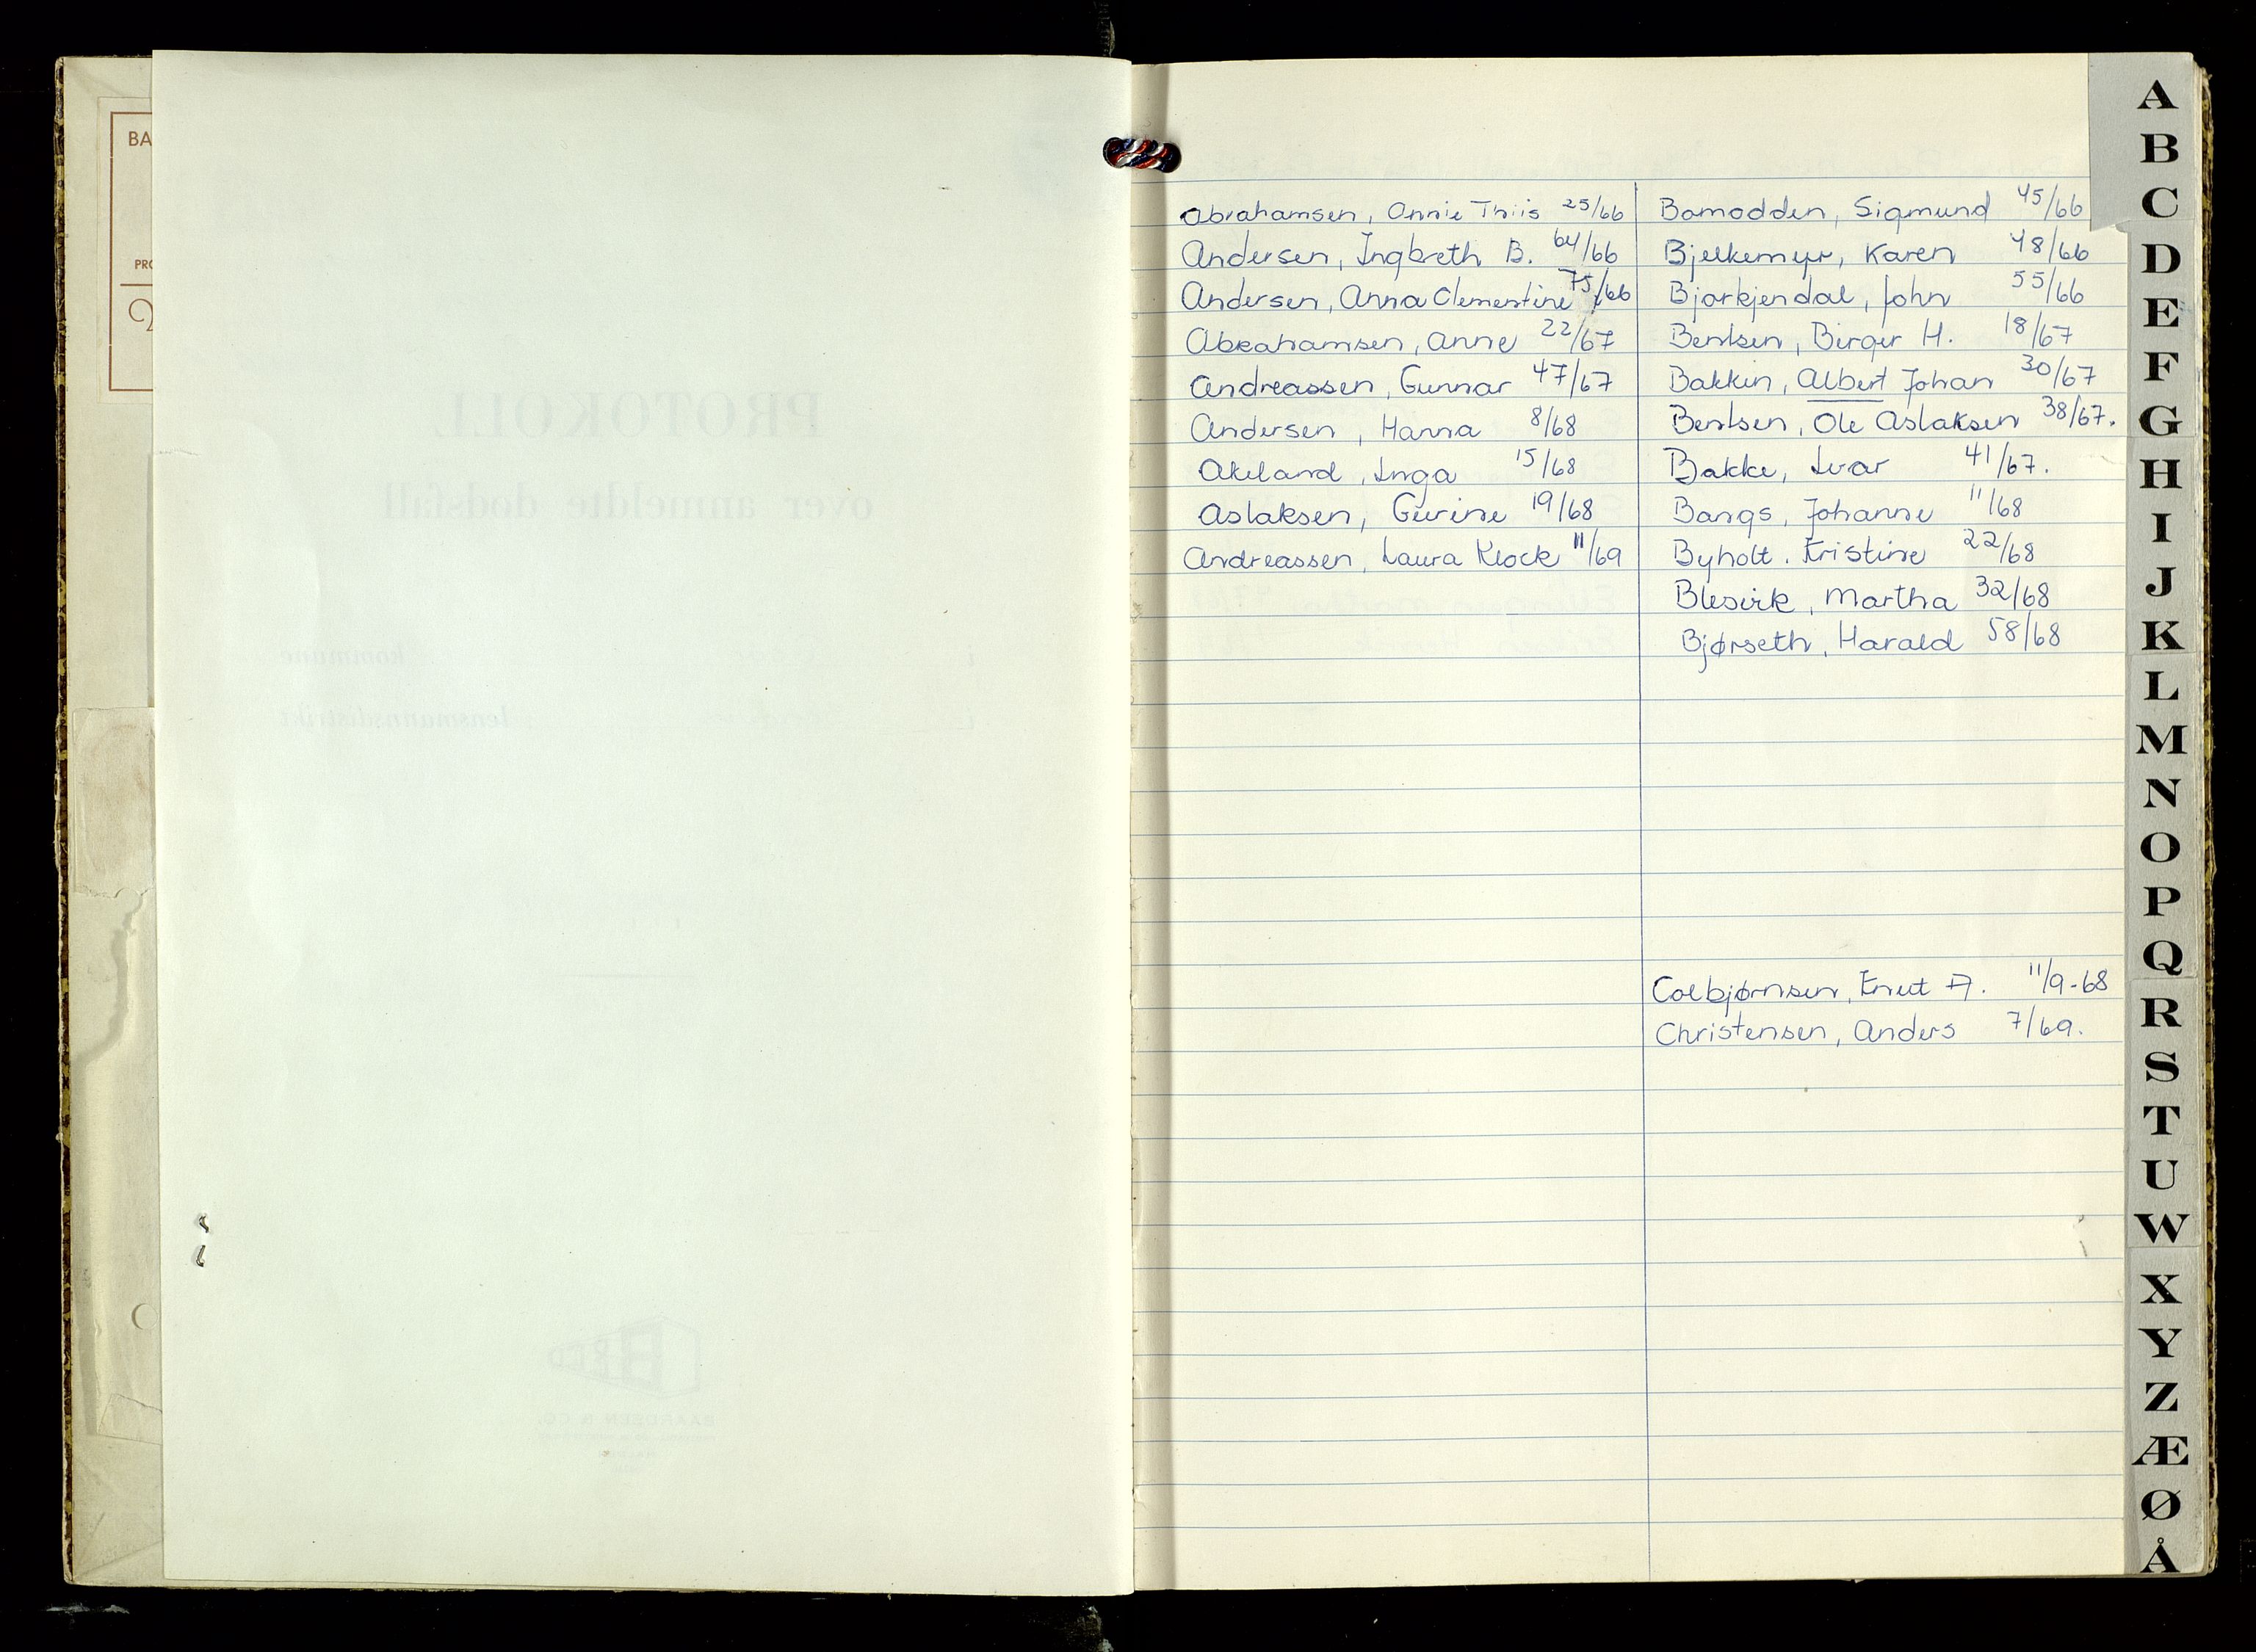 BA
PRO
PROTOKOLL
over anmeldte dødsfall
i kommune
i lensmannsdistrikt
BAARDSEN & CO.
Abrahamsen, Annie Thiis 25/66
Andersen, Ingbreth B. 64/66
Andersen, Anna Clementine 75/66
Abrahamsen, Anne 22/67
Andreassen, Gunnar 47/67
Andersen, Hanna 8/68
Akeland, Inga 15/68
Aslaksen, Gurine 19/68
Andreassen, Laura Klock 11/69
Bomodden, Sigmund 45/66
Bjelkemyr, Karen 48/66
Bjorkjendal, John 55/66
Bentsen, Birger H. 18/67
Bakkin, Albert Johan 30/67
Bentsen, Ole Aslaksen 38/67.
Bakke, Ivar 41/67.
Bangs, Johanne 11/68
Byholt. Kristine 22/68
Blesvik, Martha 32/68
Bjørseth, Harald 58/68
Colbjørnsen, Knut A. 11/9-68
Christensen, Anders 7/69.
A
B
C
D
E
F
G
H
I
J
K
L
M
N
O
P
Q
R
S
T
U
W
X
Y
Z
Æ
Ø
Å